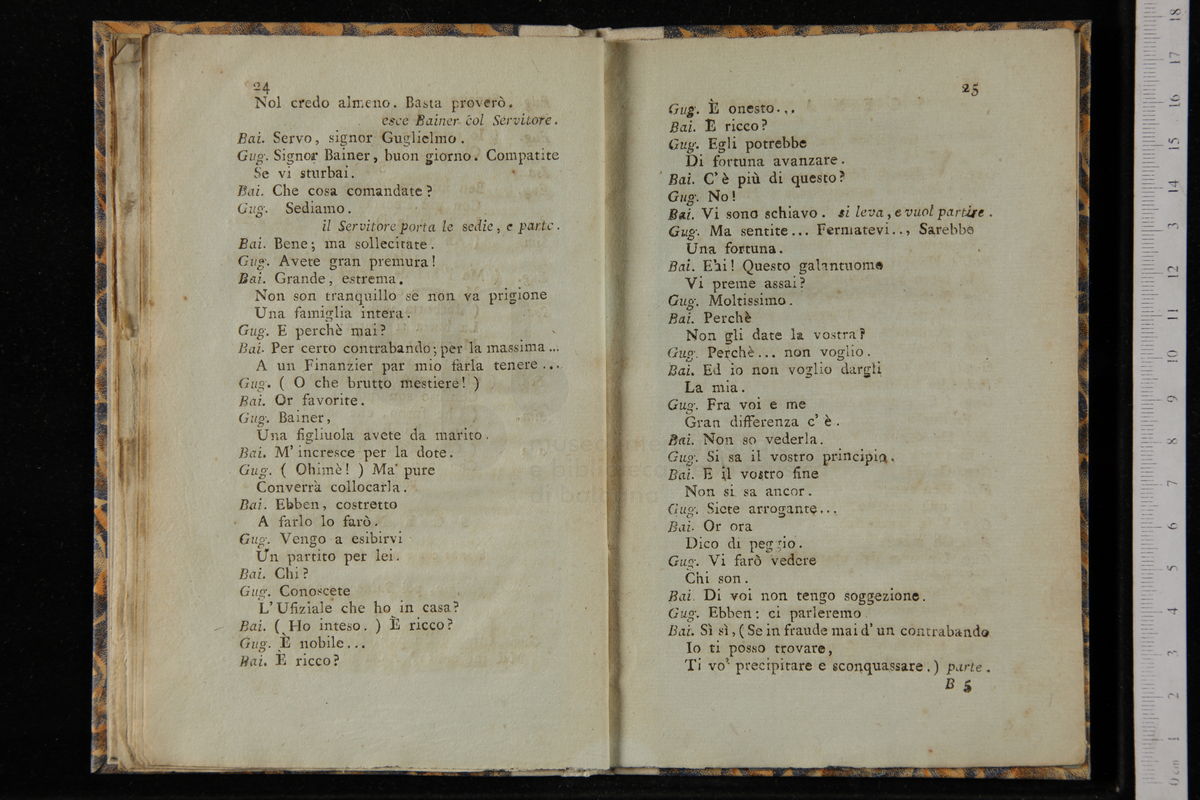 24
Nol credo almeno. Basta proverò.
esce Bainer col Servitore.
Bai. Servo, signor Guglielmo.
Gug. Signor Bainer, buon giorno. Compatite
Se vi sturbai.
Bai. Che cosa comandate?
Gug. Sediamo.
il Servitore porta le sedie, e parte.
Bai. Bene; ma sollecitate.
Gug. Avete gran premura!
Bai. Grande, estrema.
Non son tranquillo se non va prigione
Una famiglia intera.
Gug. E perchè mai?
Bai. Per certo contrabando; per la massima...
A un Finanzier par mio farla tenere...
Gug. ( O che brutto mestiere! )
Bai. Or favorite.
Gug. Bainer,
Una figliuola avete da marito.
Bai. M'incresce per la dote.
Gug. ( Ohimè! ) Ma pure
Converrà collocarla.
Bai. Ebben, costretto
A farlo lo farò.
Gug. Vengo a esibirvi
Un partito per lei.
Bai. Chi?
Gug. Conoscete
L'Ufiziale che ho in casa?
Bai. ( Ho inteso. ) È ricco?
Gug. È nobile...
Bai. È ricco?
25
Gug. È onesto...
Bai. È ricco?
Gug. Egli potrebbe
Di fortuna avanzare.
Bai. C'è più di questo?
Gug. No!
Bai. Vi sono schiavo. si leva, e vuol partire.
Gug. Ma sentite... Fermatevi.., Sarebbe
Una fortuna.
Bai. Ehi! Questo galantuomo
Vi preme assai?
Gug. Moltissimo.
Bai. Perchè
Non gli date la vostra?
Gug. Perchè... non voglio.
Bai. Ed io non voglio dargli
La mia.
Gug. Fra voi e me
Gran differenza c'è.
Bai. Non so vederla.
Gug. Si sa il vostro principio.
Bai. E il vostro fine
Non si sa ancor.
Gug. Siete arrogante...
Bai. Or ora
Dico di peggio.
Gug. Vi farò vedere
Chi son.
Bai. Di voi non tengo soggezione.
Gug. Ebben: ci parleremo
Bai. Sì sì, (Se in fraude mai d'un contrabando
Io ti posso trovare,
Ti vo' precipitare e sconquassare.) parte.
B 5